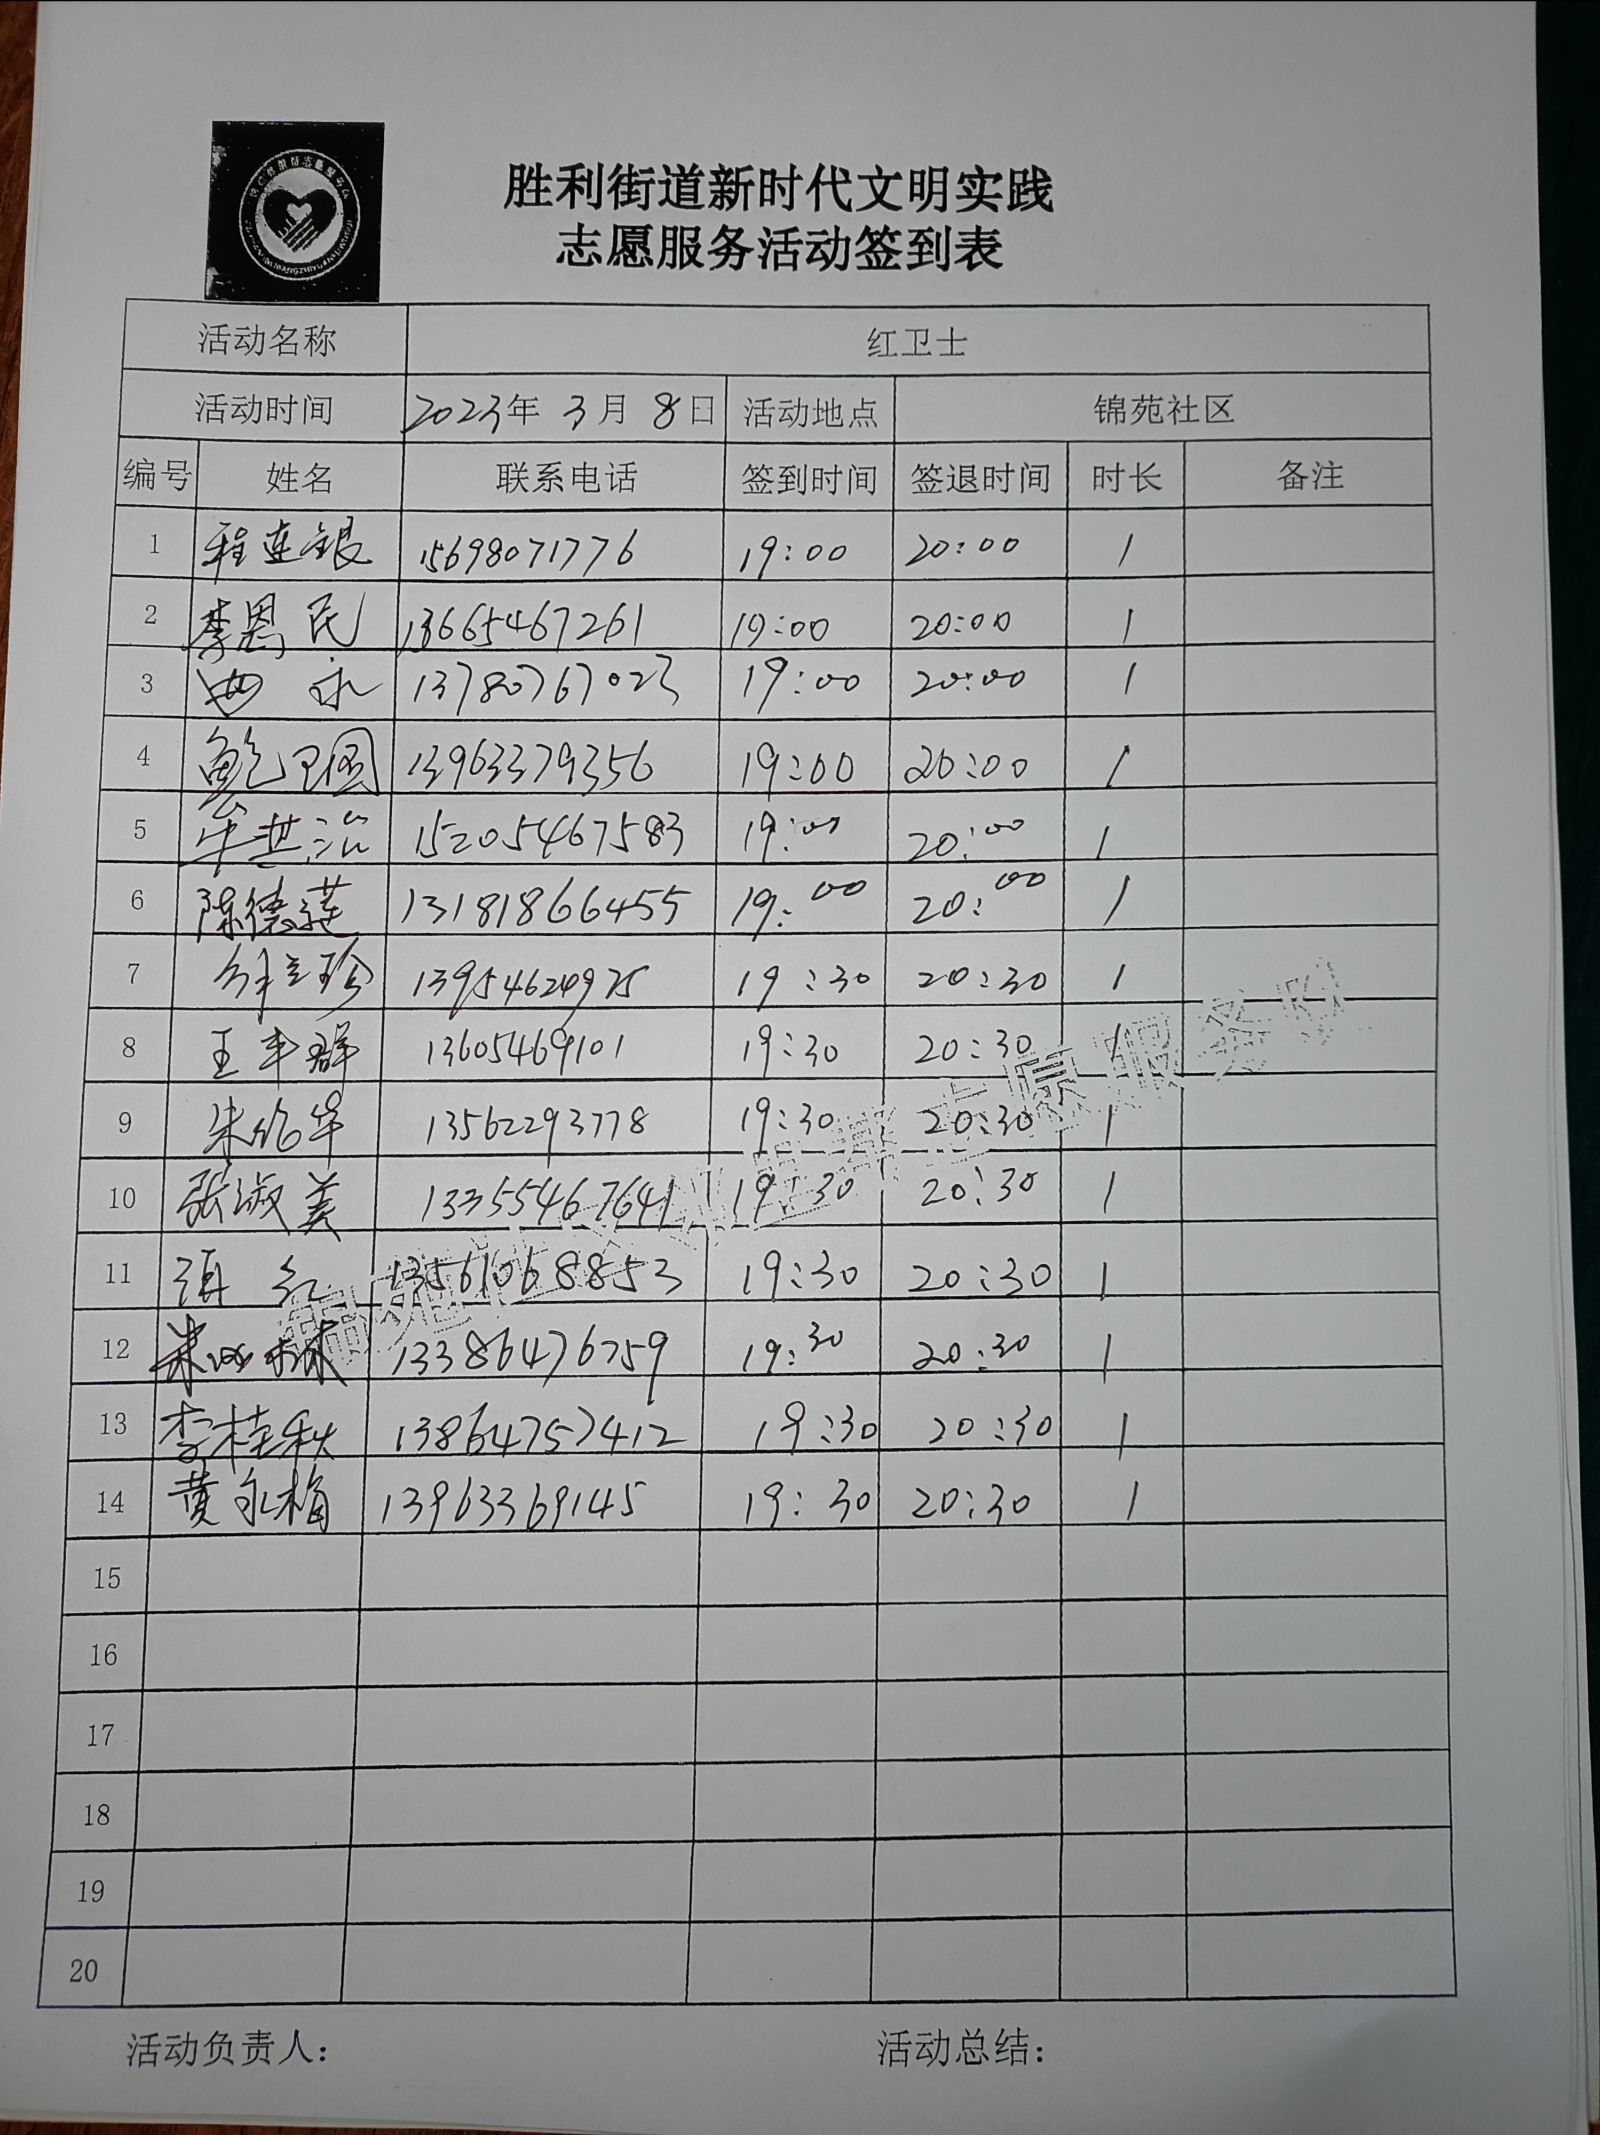 胜利街道新时代文明实践
志愿服务活动签到表
活动名称 红卫士
活动时间 2023年 3月 8日 活动地点 锦苑社区
编号 姓名 联系电话 签到时间 签退时间 时长 备注
1 程连银 15698071776 19:00 20:00 1
2 李恩民 13665467261 19:00 20:00 1
3 曲永 13780767023 19:00 20:00 1
4 鲍卫国 13963379356 19:00 20:00 1
5 牟其治 15205467583 19:00 20:00 1
6 陈德莲 13181866455 19:00 20:00 1
7 珍 13954620975 19:30 20:30 1
8 王丰群 13605469101 19:30 20:30 1
9 朱华 13562293778 19:30 20:30 1
10 张淑美 13355467641 19:30 20:30 1
11 红 13561068853 19:30 20:30 1
12 朱林 13386476759 19:30 20:30 1
13 李桂秋 13864757412 19:30 20:30 1
14 黄永梅 13963369145 19:30 20:30 1
15
16
17
18
19
20
活动负责人： 活动总结：